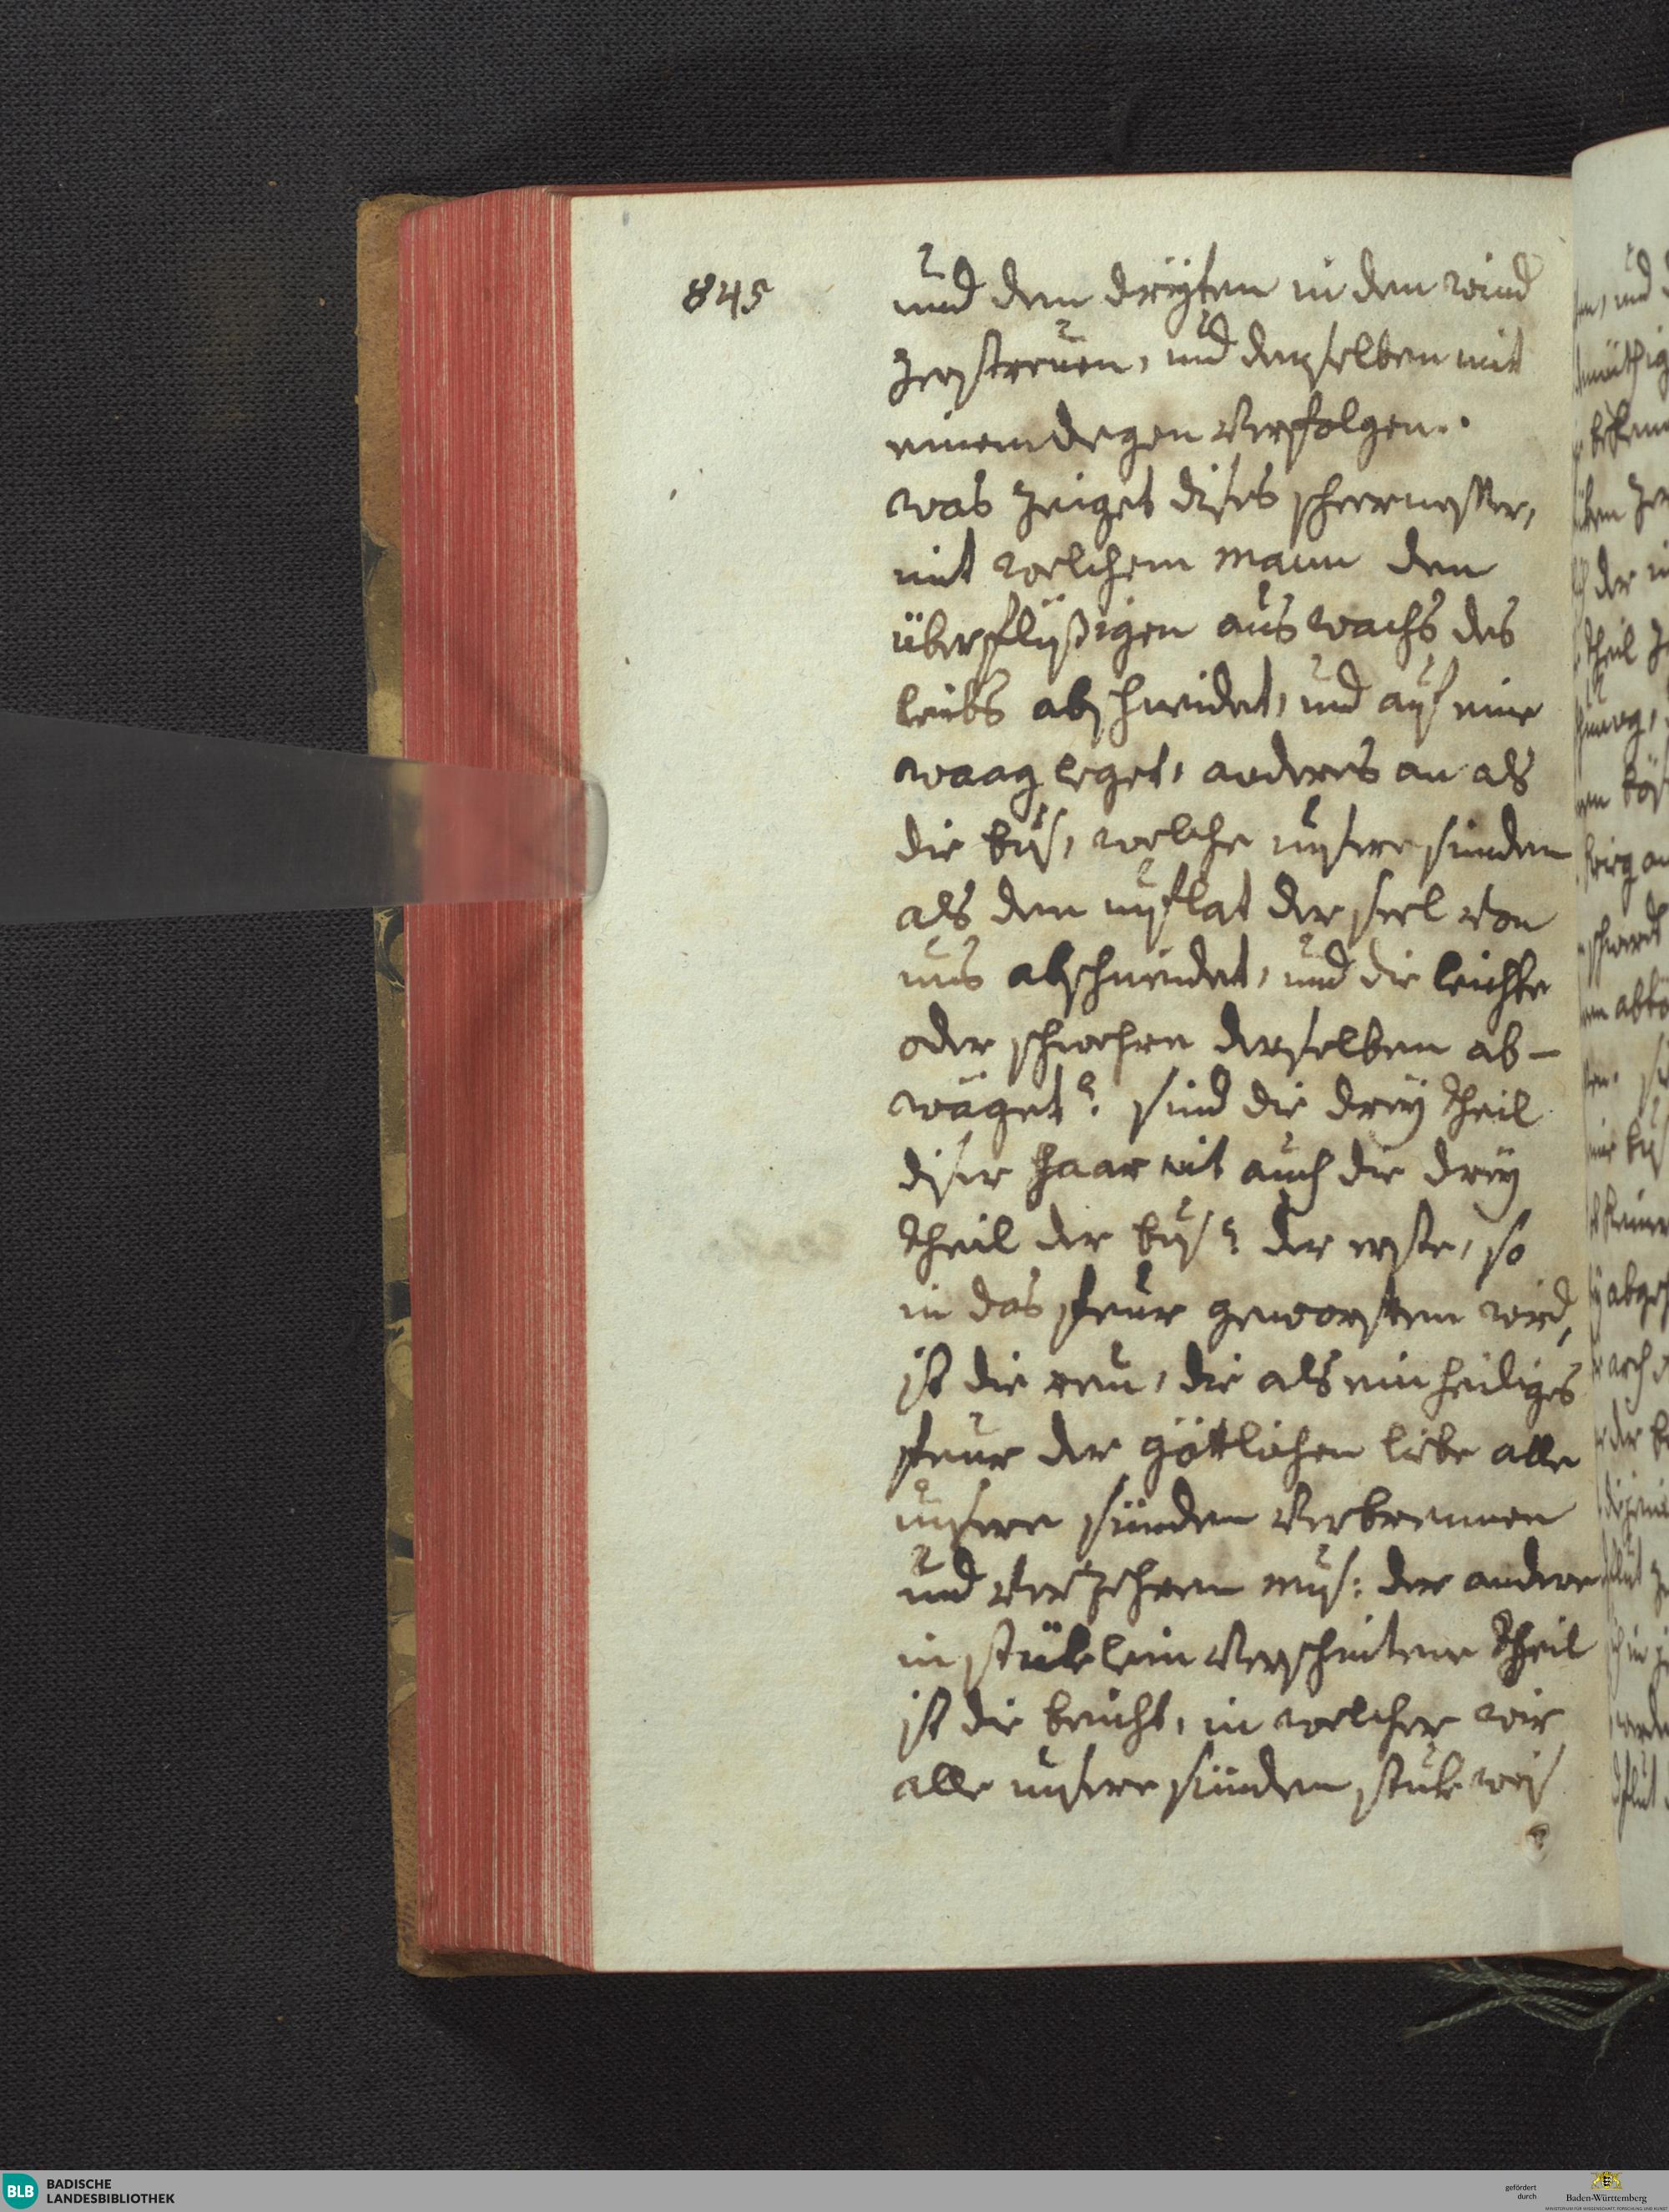 845
und den dryten in den wind
zerstreuen, und denselben mit
einem degen verfolgen.
was zeiget dises scheermesser,
mit welchem mann den
überflüßigen auswachs des
leibs abschneidet, und auf eine
waag leget, anders an als
die bus, welche unsere sünden
als den unflat der seel von
uns abschneidet, und die leichte
oder schwehre derselben ab-
wäget? sind die drey theil
diser haar nit auch die drey
theil der bus? der erste, so
in das feur geworffen wird,
ist die reu, die als ein heiliges
feur der göttlichen liebe alle
unsere sünden verbrennen
und verzehren mus: der andere
in stüklein verschnitene theil
ist die beicht, in welcher wir
alle unsere sünden stuk weis
BLB
BADISCHE
LANDESBIBLIOTHEK
gefördert
durch
Baden-Württemberg